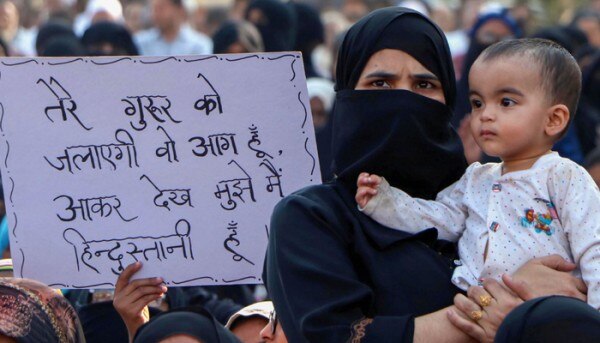 तेरे गुरूर को
जलाएगी वो आग हूँ,
आकर देख मुझे मैं
हिन्दुस्तानी हूँ